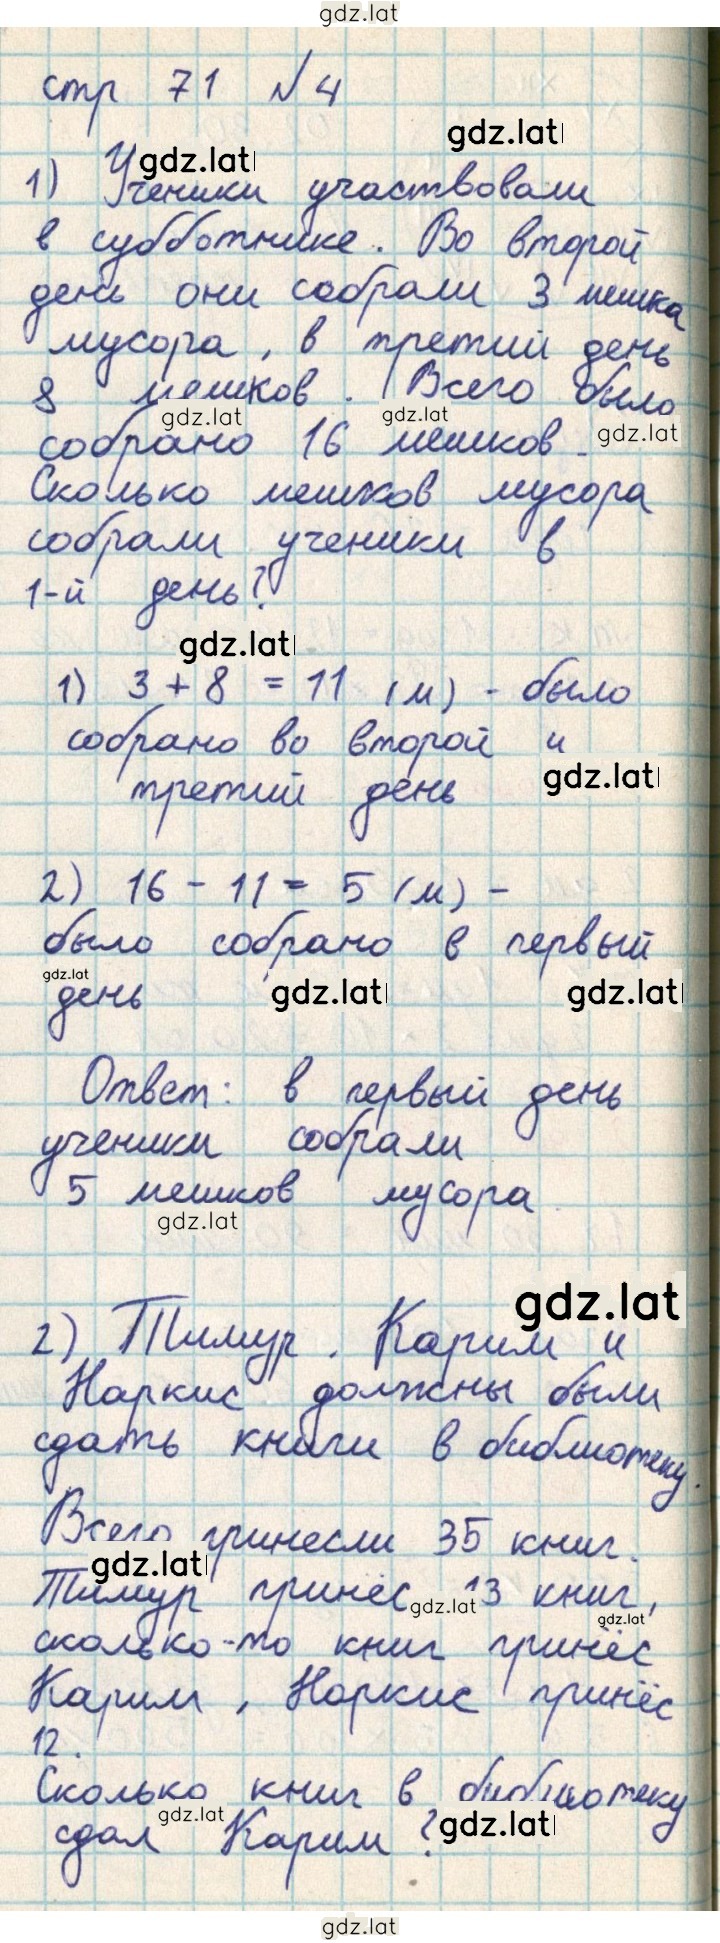 gdz.lat
стр 71 №4
gdz.lat
gdz.lat
1) Ученики участвовали
в субботнике. Во второй
день они собрали 3 мешка
мусора, в третий день
8 мешков. Всего было
gdz.lat gdz.lat
собрано 16 мешков. gdz.lat
Сколько мешков мусора
собрали ученики в
1-й день?
gdz.lat
1) 3 + 8 = 11 (м) - было
собрано во второй и
gdz.lat
третий день
2) 16 - 11 = 5 (м) -
было собрано в первый
gdz.lat
день gdz.lat gdz.lat
Ответ: в первый день
ученики собрали
5 мешков мусора
gdz.lat
gdz.lat
2) Тимур, Карим и
Наркис должны были
сдать книги в библиотеку.
Всего принесли 35 книг.
gdz.lat
Тимур принёс 13 книг,
gdz.lat gdz.lat
сколько-то книг принёс
Карим, Наркис принёс
12.
Сколько книг в библиотеку
gdz.lat gdz.lat
сдал Карим?
gdz.lat